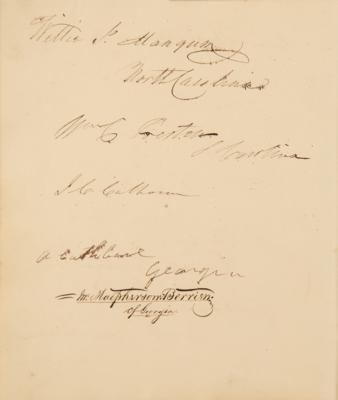 Willie P. Mangum
North Carolina
Wm C Preston
S Carolina
J. C. Calhoun
A Cuthbert
Georgia
Jn. Macpherson Berrien
of Georgia